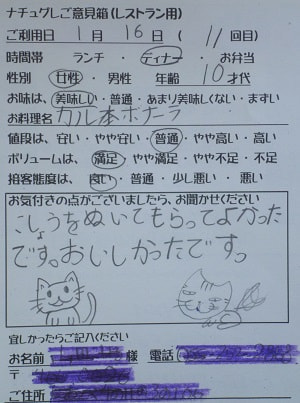 ナチュグレご意見箱(レストラン用)
ご利用日 1月 16日 ( 11回目)
時間帯 ランチ・ディナー・お弁当
性別 女性・男性 年齢 10才代
お味は、美味しい・普通・あまり美味しくない・まずい
お料理名 カル本ボナーラ
値段は、安い・やや安い・普通・やや高い・高い
ボリュームは、満足・やや満足・やや不足・不足
接客態度は、良い・普通・少し悪い・悪い
お気付きの点がございましたら、お聞かせください
こしょうをぬいてもらってよかった
です。おいしかったです。
宜しかったらご記入ください
お名前 様 電話
〒
ご住所